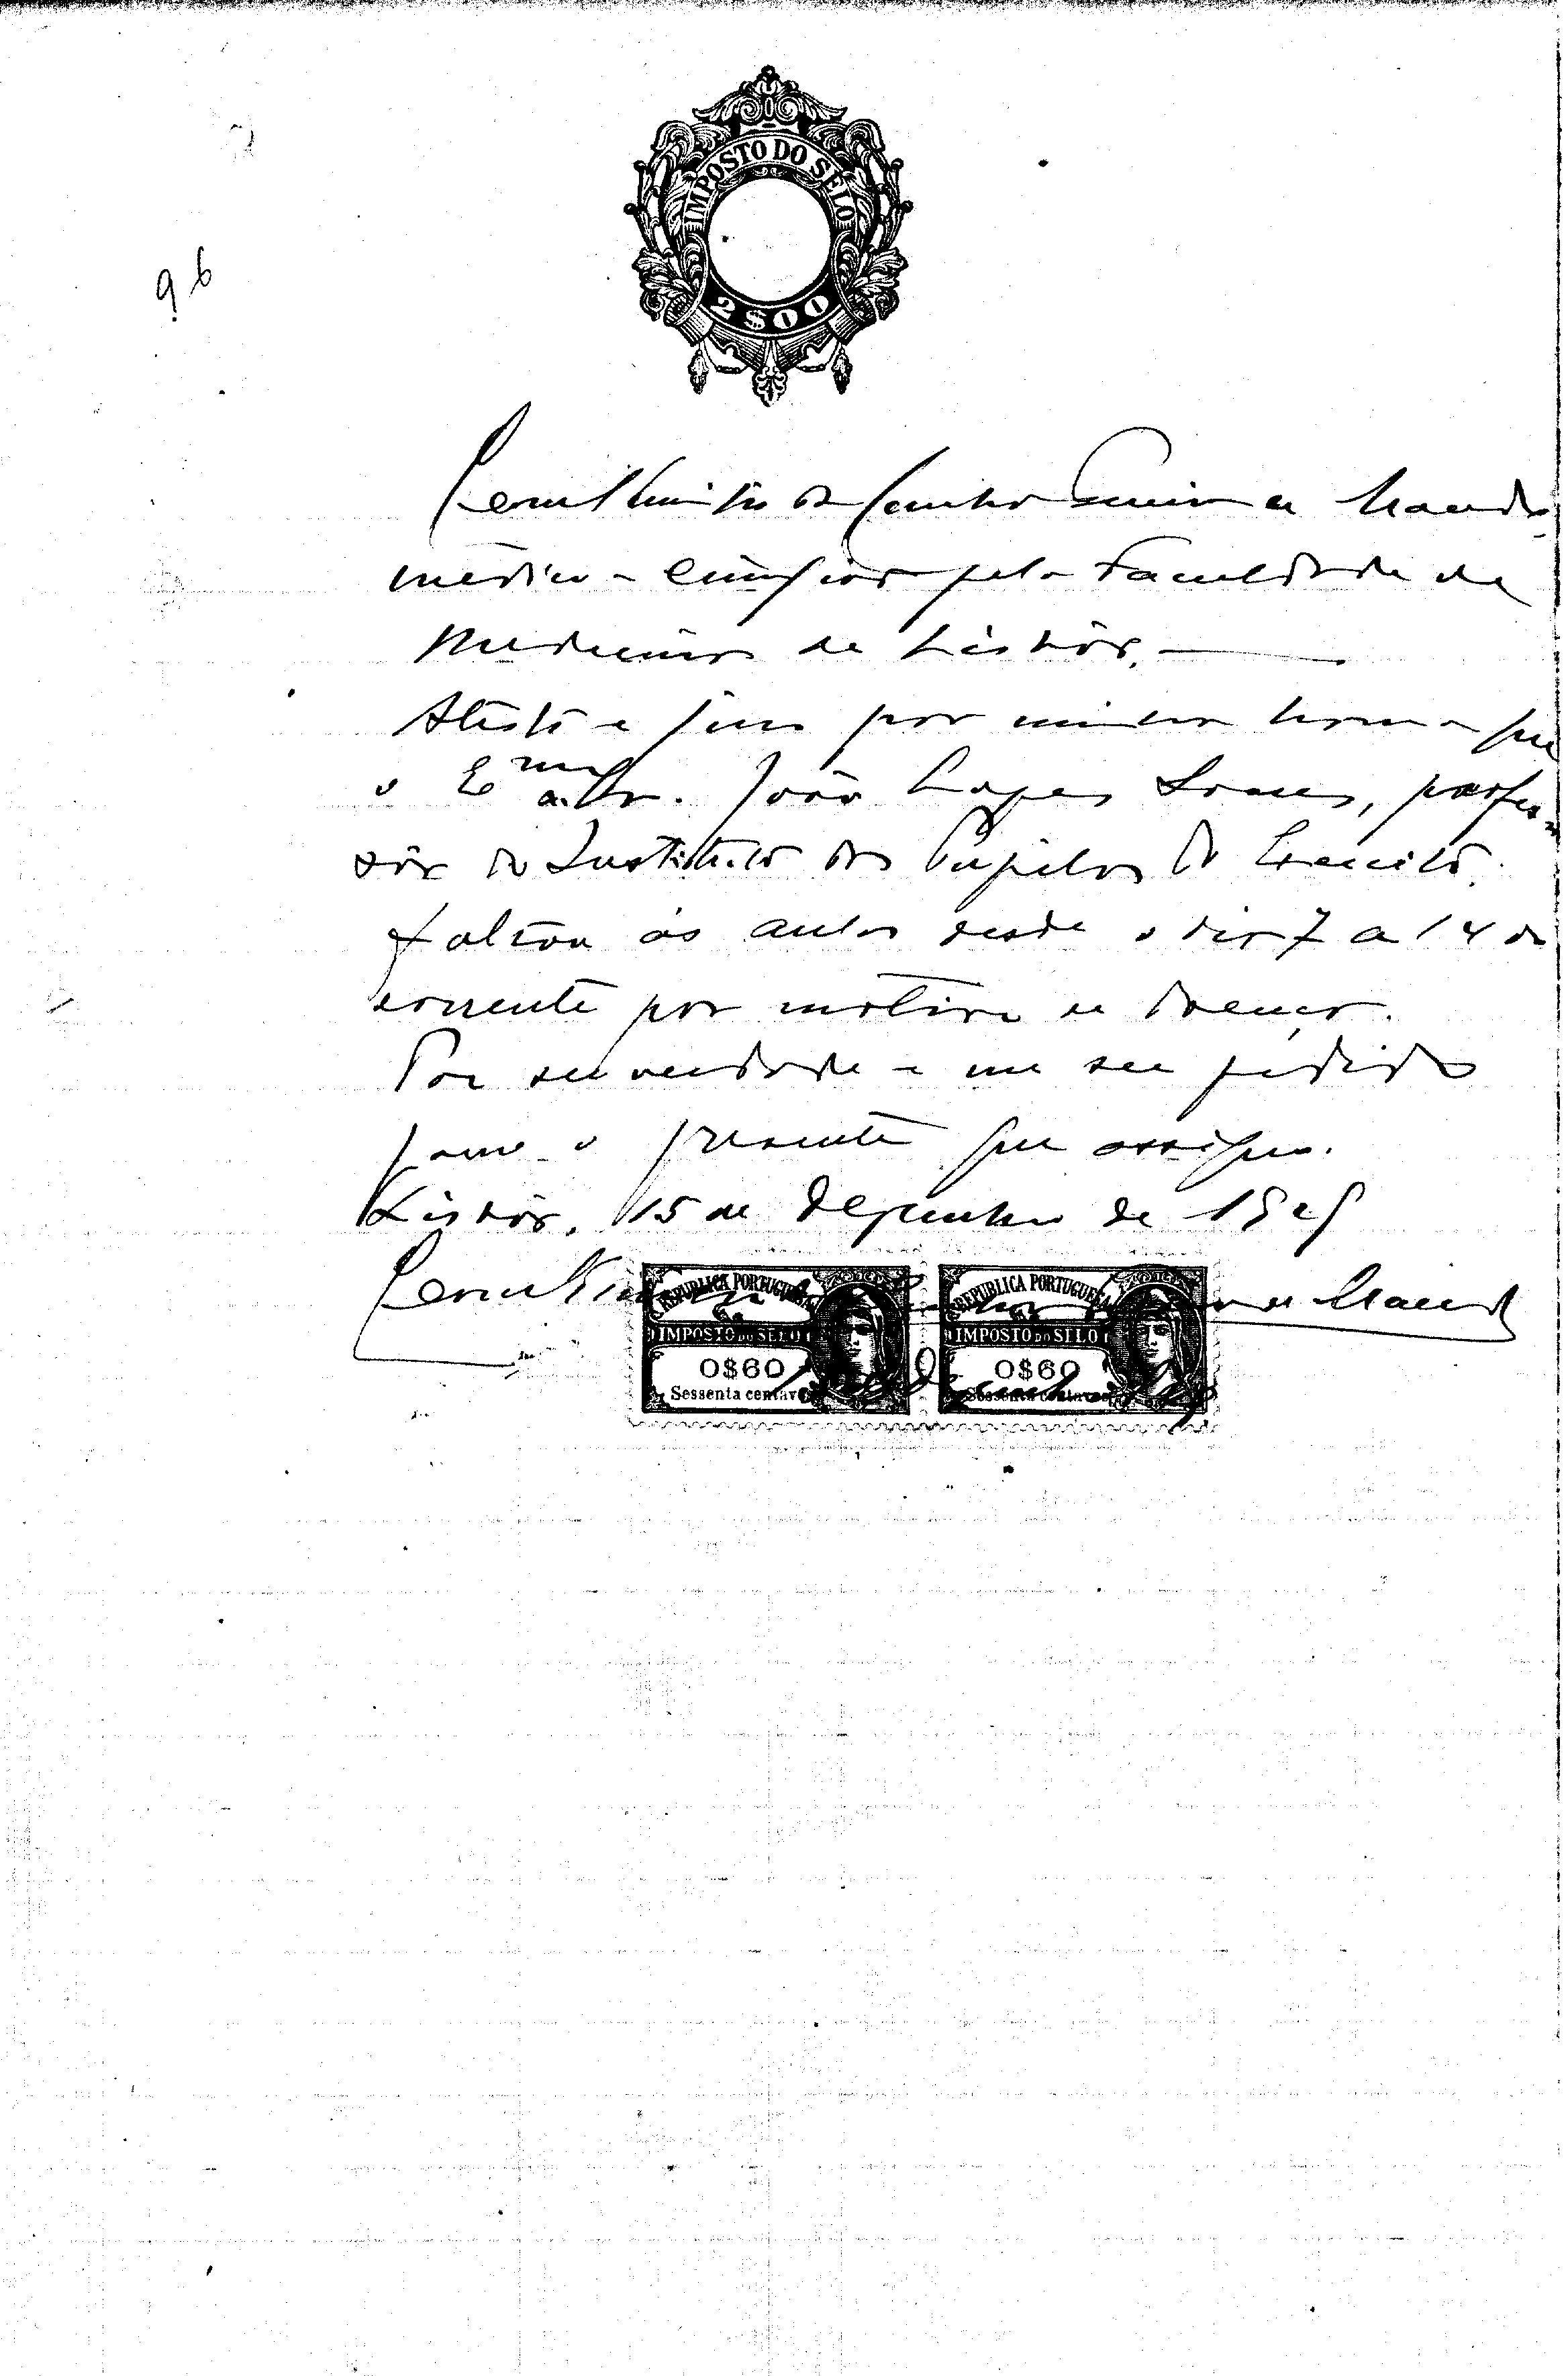 96
IMPOSTO DO SELO
2$00
de
médico-cirurgião pela Faculdade de
Medicina de Lisbôa.
Atesto e juro por minha honra que
o Sr. João Lopes Soares, profes-
sôr do Instituto dos Pupilos do Exercito
faltou ás aulas desde o dia 7 a 14 do
corrente por motivo de doença.
Por ser verdade e me ser pedido
passo o presente que assigno.
Lisbôa, 15 de Dezembro de
REPUBLICA PORTUGUESA REPUBLICA PORTUGUESA
IMPOSTO DO SELO IMPOSTO DO SELO
0$60 0$60
Sessenta centavos Sessenta centavos